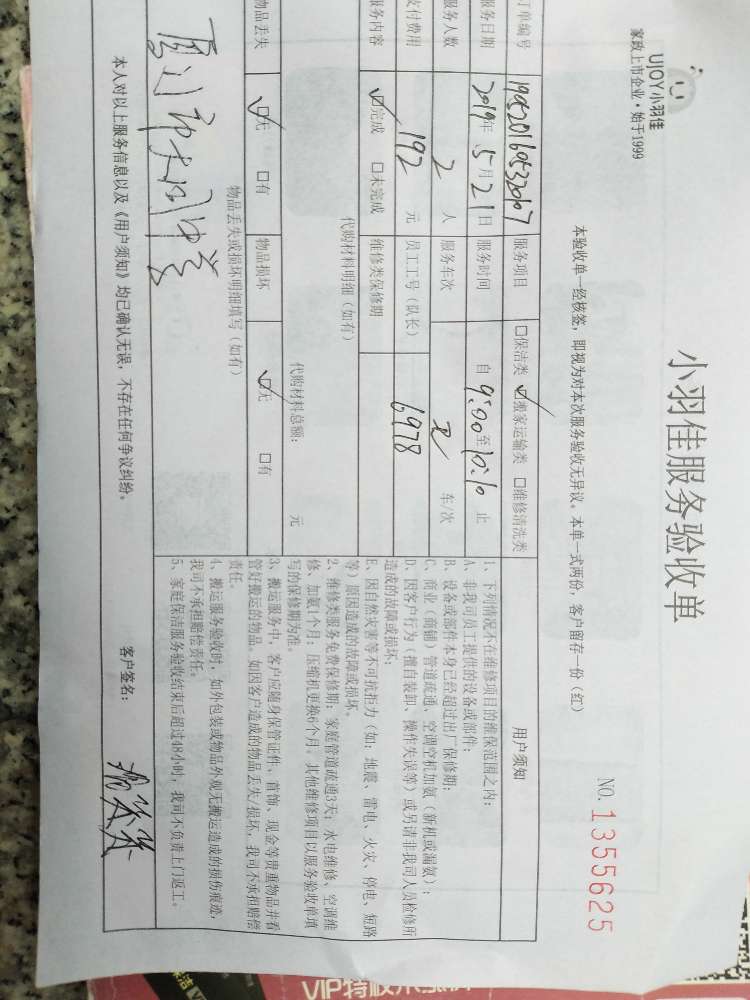 UJOY小羽佳
家政上市企业·始于1999
小羽佳服务验收单
本验收单一经核签，即视为对本次服务验收无异议。本单一式两份，客户留存一份（红）
NO.1355625
订单编号 服务项目 □保洁类 ☑搬家运输类 □维修清洗类
服务日期 2019年5月21日 服务时间 自9:00至10:10止
服务人数 2人 服务车次 车/次
支付费用 192元 员工工号（队长） 6978
服务内容 ☑完成 □未完成 维修类保修期
代购材料明细（如有）
代购材料总额： 元
物品丢失 ☑无 □有 物品损坏 ☑无 □有
物品丢失或损坏明细填写（如有）
用户须知
1、下列情况不在维修项目的维保范围之内：
A、非我司员工提供的设备或部件；
B、设备或部件本身已经超过出厂保修期；
C、商业（商铺）管道疏通、空调空机加氨（新机或漏氨）；
D、因客户行为（擅自装卸、操作失误等）或另请非我司人员检修所
造成的故障或损坏；
E、因自然灾害等不可抗拒力（如：地震、雷电、火灾、停电、短路
等）原因造成的故障或损坏。
2、维修类服务免费保修期：家庭管道疏通3天；水电维修、空调维
修、加氨1个月；压缩机更换6个月，其他维修项目以服务验收单填
写的保修期为准。
3、搬运服务中，客户应随身保管证件、首饰、现金等贵重物品并看
管好搬运的物品。如因客户造成的物品丢失/损坏，我司不承担赔偿
责任。
4、搬运服务验收时，如外包装或物品外观无搬运造成的损伤痕迹，
我司不承担赔偿责任。
5、家庭保洁服务验收结束后超过48小时，我司不负责上门返工。
本人对以上服务信息以及《用户须知》均已确认无误，不存在任何争议纠纷。
客户签名：
VIP特权